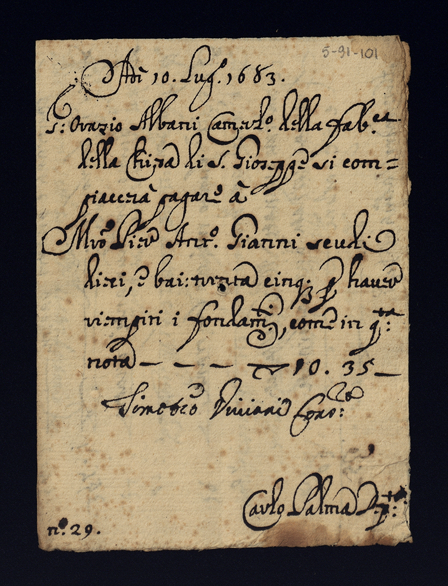 5-91-101
Adi 10. Lugº. 1683.
S: Orazio Albani Camerlº. della fab.ca
della Chiesa di S. Gioseppe si com=
piacerà pagare à
Mrº Pier Antº. Gianni scudi
dieci, e bai: trenta cinq; p haver
riempiti i fondam.ti, come in q.ta:
nota — — — ∇ 10. 35 —
Timoteo Viviani
Carlo Palma
nº. 29.